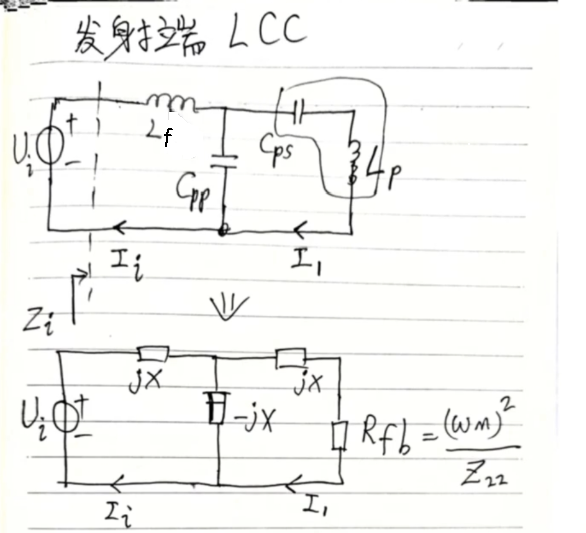 发射端 LCC
Lf
Cps
Ui
+
-
Cpp
Lp
Ii
I1
Zi
jX
jX
Ui
+
-
-jX
Rfb = (ωM)²
Z22
Ii
I1